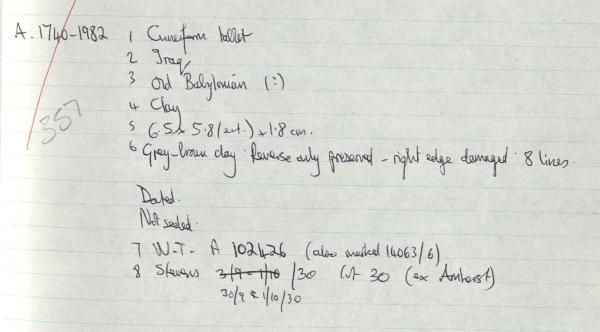 A. 1740-1982 1 Cuneiform tablet
2 Iraq
3 Old Babylonian (?)
4 Clay
357
5 6.5 x 5.8 (ext.) x 1.8 cm.
6 Grey-brown clay. Reverse only preserved - right edge damaged. 8 lines.
Dated.
Not sealed.
7 W.T. - A 102426 (also marked 14063/6)
8 Stevens 3/9 - 1/10 /30 lot 30 (ex Amherst)
30/9 & 1/10/30